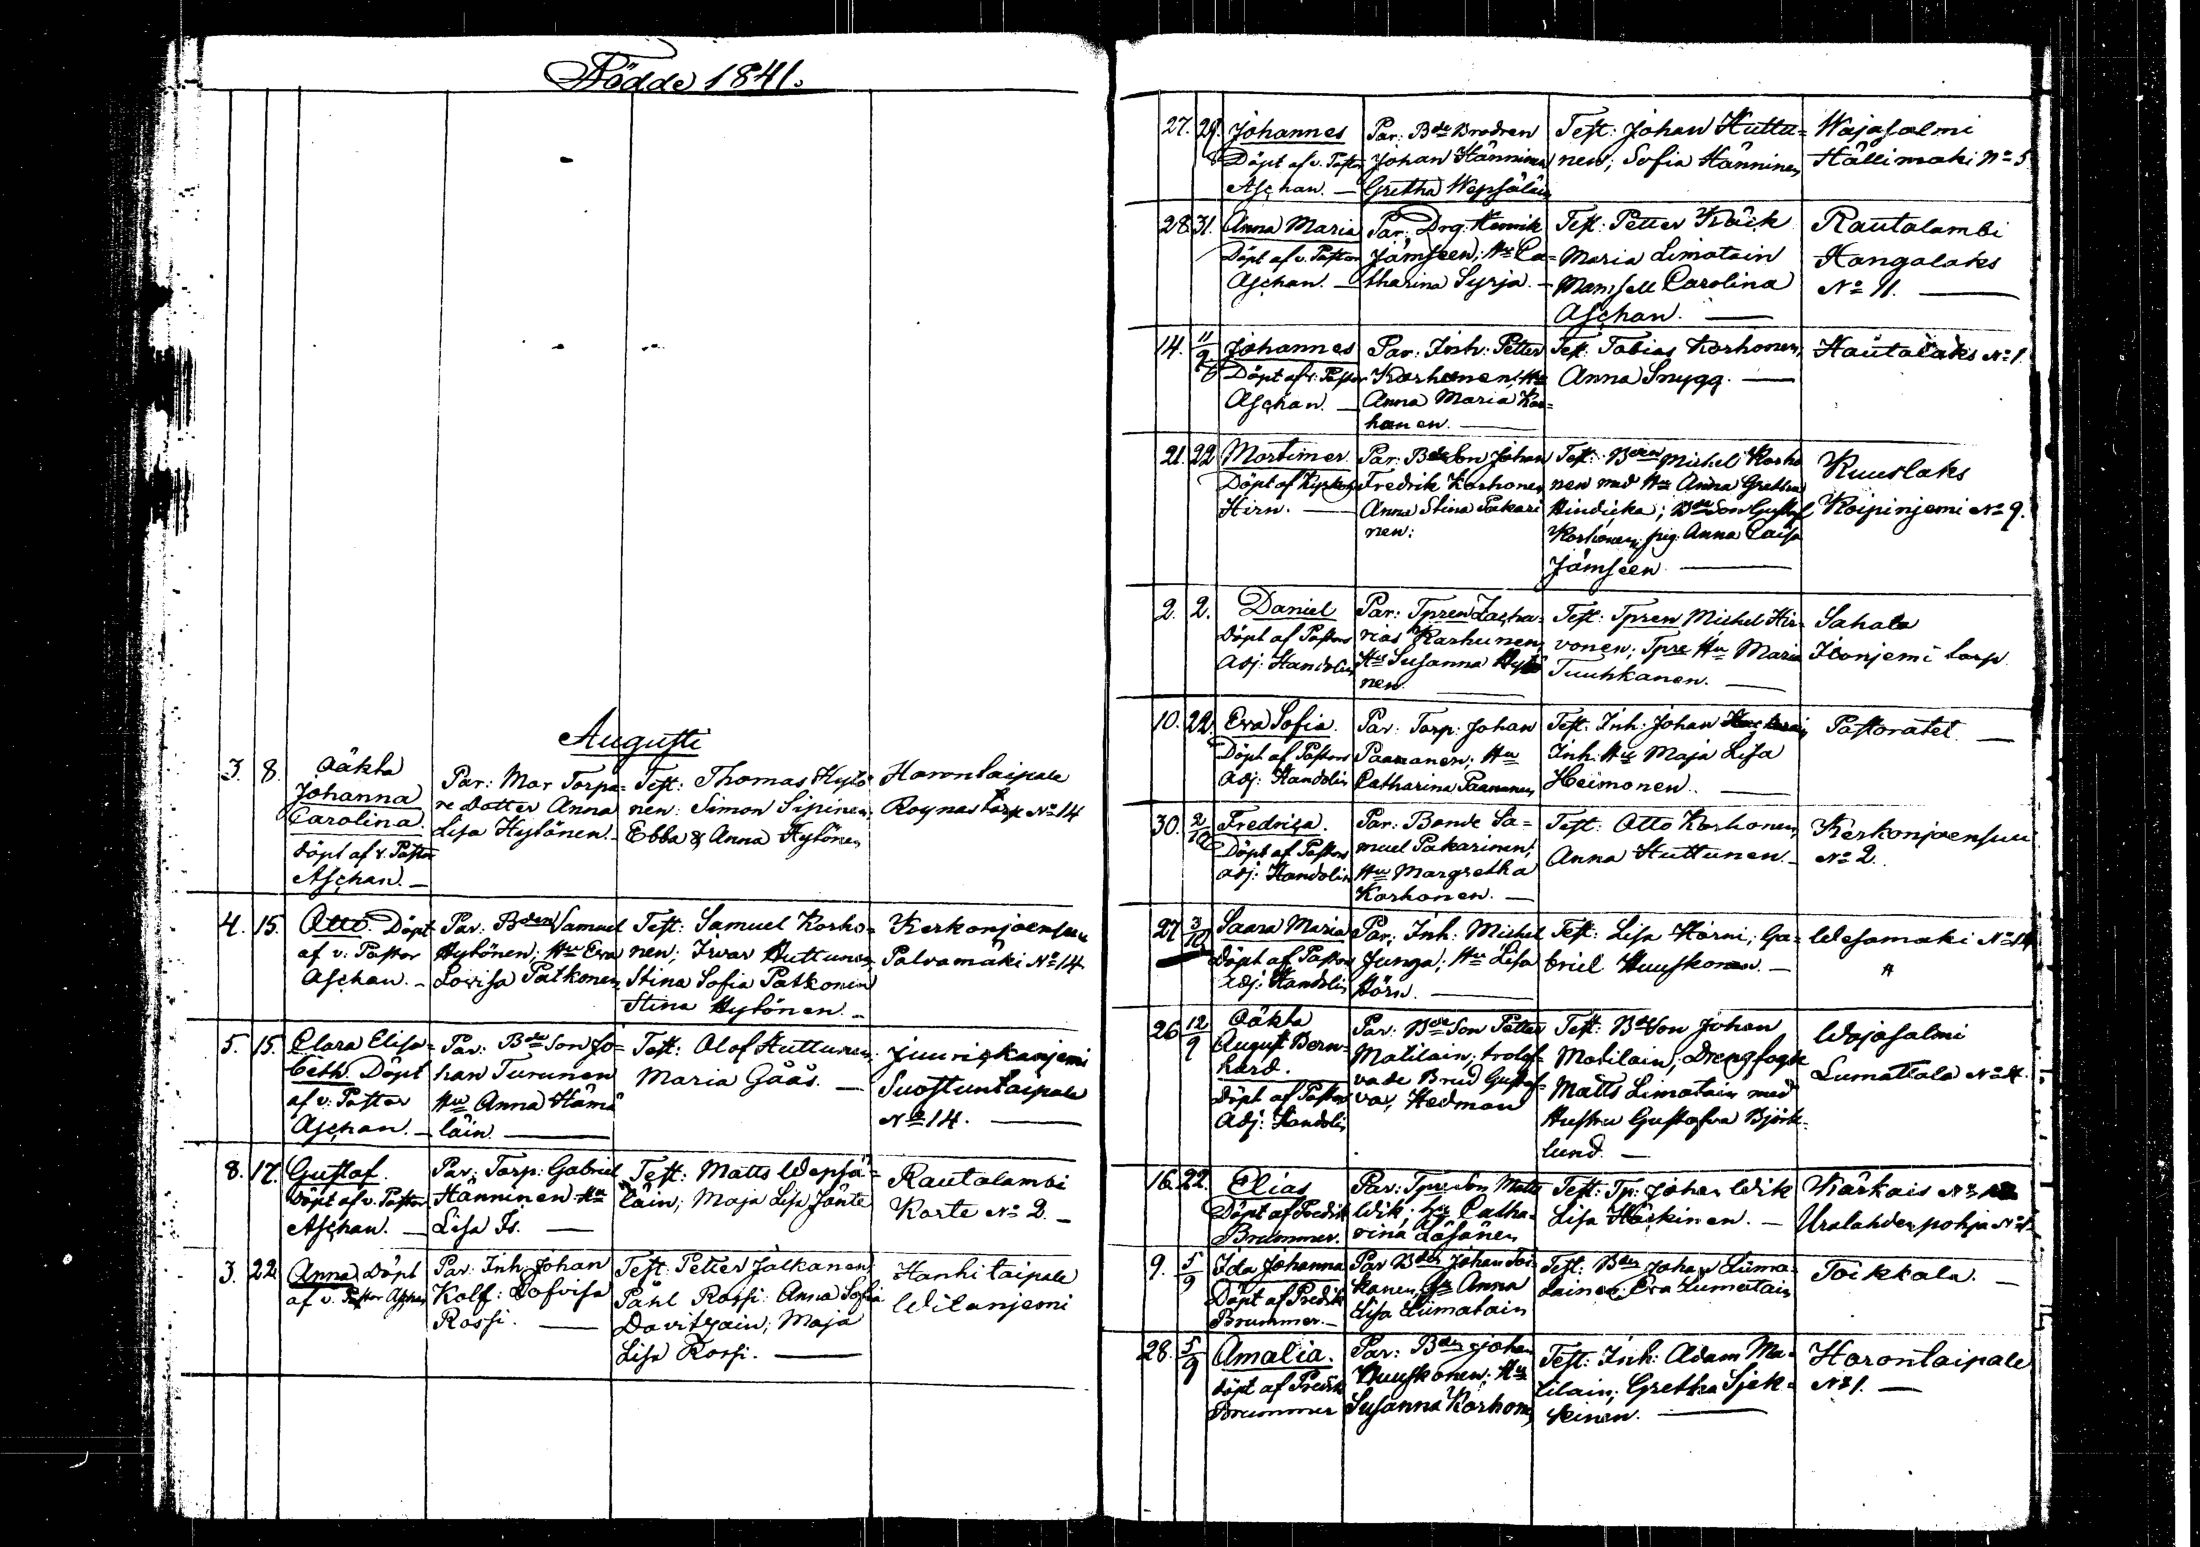 Födde 1841.
Augusti
3. 8. Oäkta Johanna Carolina. döpt af v. Pastor Aschan. —
Par: Mor Torpare dotter Anna Lisa Hytönen. —
Test: Thomas Hytönen: Simon Sipinen, Ebba & Anna Hytönen
Harontaipale Roynas torp No 14
4. 15. Otto. Döpt af v. Pastor Aschan. —
Par: Bden Samuel Hytönen; Hu Eva Lovisa Patkonen,
Test: Samuel Korhonen; Ivar Huttunen, Stina Sofia Patkonen Stina Hytönen. —
Kerkonjoensuu Palvamäki No 14
5. 15. Clara Elisabeth. Döpt af v. Pastor Aschan. —
Par: Bde Son Johan Turunen Hu Anna Hämäläin. —
Test: Olof Huttunen. Maria Gåås. —
Juurikkanjemi Suostuntaipale No 14. —
8. 17. Gustaf. Döpt af v. Pastor Aschan. —
Par: Torp: Gabriel Hänninen Hu Lisa Is. —
Test: Matts Wepsäläin; Maja Lisa Jänte
Rautalambi Korte No 2. —
3. 22. Anna Döpt af v. Pastor Aschan
Par: Inh: Johan Kolf: Lofvisa Rossi. —
Test: Petter Jalkanen, Påhl Rossi: Anna Sofia Davitzain; Maja Lisa Rossi. —
Hanhitaipale Witanjemi
27. 29. Johannes Döpt af v. Pastor Aschan. —
Par: Bde Brodren Johan Hänninen Gretha Wepsäläin
Test: Johan Huttunen; Sofia Hänninen,
Wajasalmi Hällimäki No 5
28. 31. Anna Maria Döpt af v. Pastor Aschan. —
Par: Drg. Henrik Jämseen; Hu Catharina Syrja. —
Test: Petter Kock Maria Limatain Mamsell Carolina Aschan. —
Rautalambi Hangalaks No 11. —
14. 11/9. Johannes Döpt af v. Pastor Aschan. —
Par: Inh: Petter Korhonen: Hu Anna Maria Korhonen. —
Test: Tobias Korhonen, Anna Snygg. —
Hautolaks No 1.
21. 22 Mortimer. Döpt af Hirn. —
Par: Bde Son Johan Fredrik Korhonen Anna Stina Pakarinen:
Test: Michel Korhonen med Hu Anna Gretha Hindicka; Bde Son Gustaf Korhonen; pig. Anna Caisa Jämseen —
Kuuslaks Koipinjemi No 9.
2. 2. Daniel Döpt af Pastors Adj: Handolin
Par: Tpren Zacharias Karhunen, Hu Susanna Hytönen. —
Test: Tpren Michel Hirvonen; Tpre Hu Maria Tuuhkanen. —
Sahala torp
10. 22. Eva Sofia. Döpt af Pastors Adj: Handolin
Par: Torp: Johan Paananen; Hu Catharina Paananen,
Test: Inh: Johan Inh: Hu Maja Lisa Heimonen. —
Pastoratet. —
30. 2/10 Fredrica. Döpt af Pastors adj: Handolin
Par: Bonde Samuel Pakarinen; Hu Margretha Korhonen. —
Test: Otto Korhonen, Anna Huttunen. —
Kerkonjoensuu No 2.
27. 3/10 Saara Maria Döpt af Pastors Adj: Handolin
Par: Inh: Michel Junga; Hu Lisa Hörn. —
Test: Lisa Härni; Gabriel Huuskonen. —
Wesamaki No 14
26 12/9 Oäkta August Bernhard. Döpt af Pastors Adj: Handolin
Par: Bde Son Petter Matilain; trolofvade Brud Gustafva, Hedman
Test: Bde Son Johan Matilain; Drengfogde Matts Limatain med Hustru Gustafva Björklund —
Wajasalmi Lumattala No 4.
16. 22. Elias Döpt af Fredrik Brummer.
Par: Tpre Son Matts Wik; Hu Catharina Läsänen
Test: Tp: Johan Wik Lisa Häskinen. —
Kärkais Uralahdenpohja
9. 5/9 Ida Johanna Döpt af Fredrik Brummer. —
Par Bden Johan Toikkanen, Hu Anna Lisa Liimatain
Test: Bden Johan Liimatainen: Eva Liimatain
Toikkala. —
28. 5/9 Amalia. döpt af Fredrik Brummer
Par: Bden Johan Huuskonen; Hu Susanna Korhonen,
Test: Inh: Adam Matilain; Gretha Sjekkinen. —
Harontaipale No 1. —